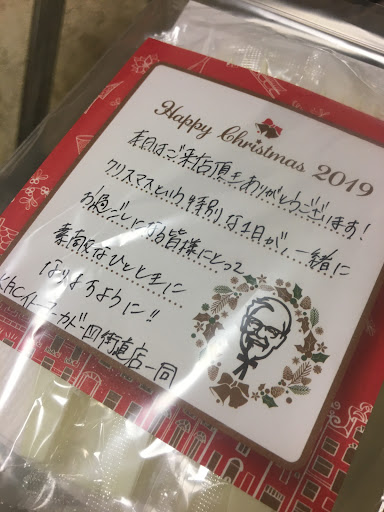 Happy Christmas 2019
本日はご来店頂きありがとうございます!
クリスマスという特別な1日がご一緒に
お過ごしになる皆様にとって
素敵なひとときに
なりますように!!
KFCイトーヨーカドー四街道店一同